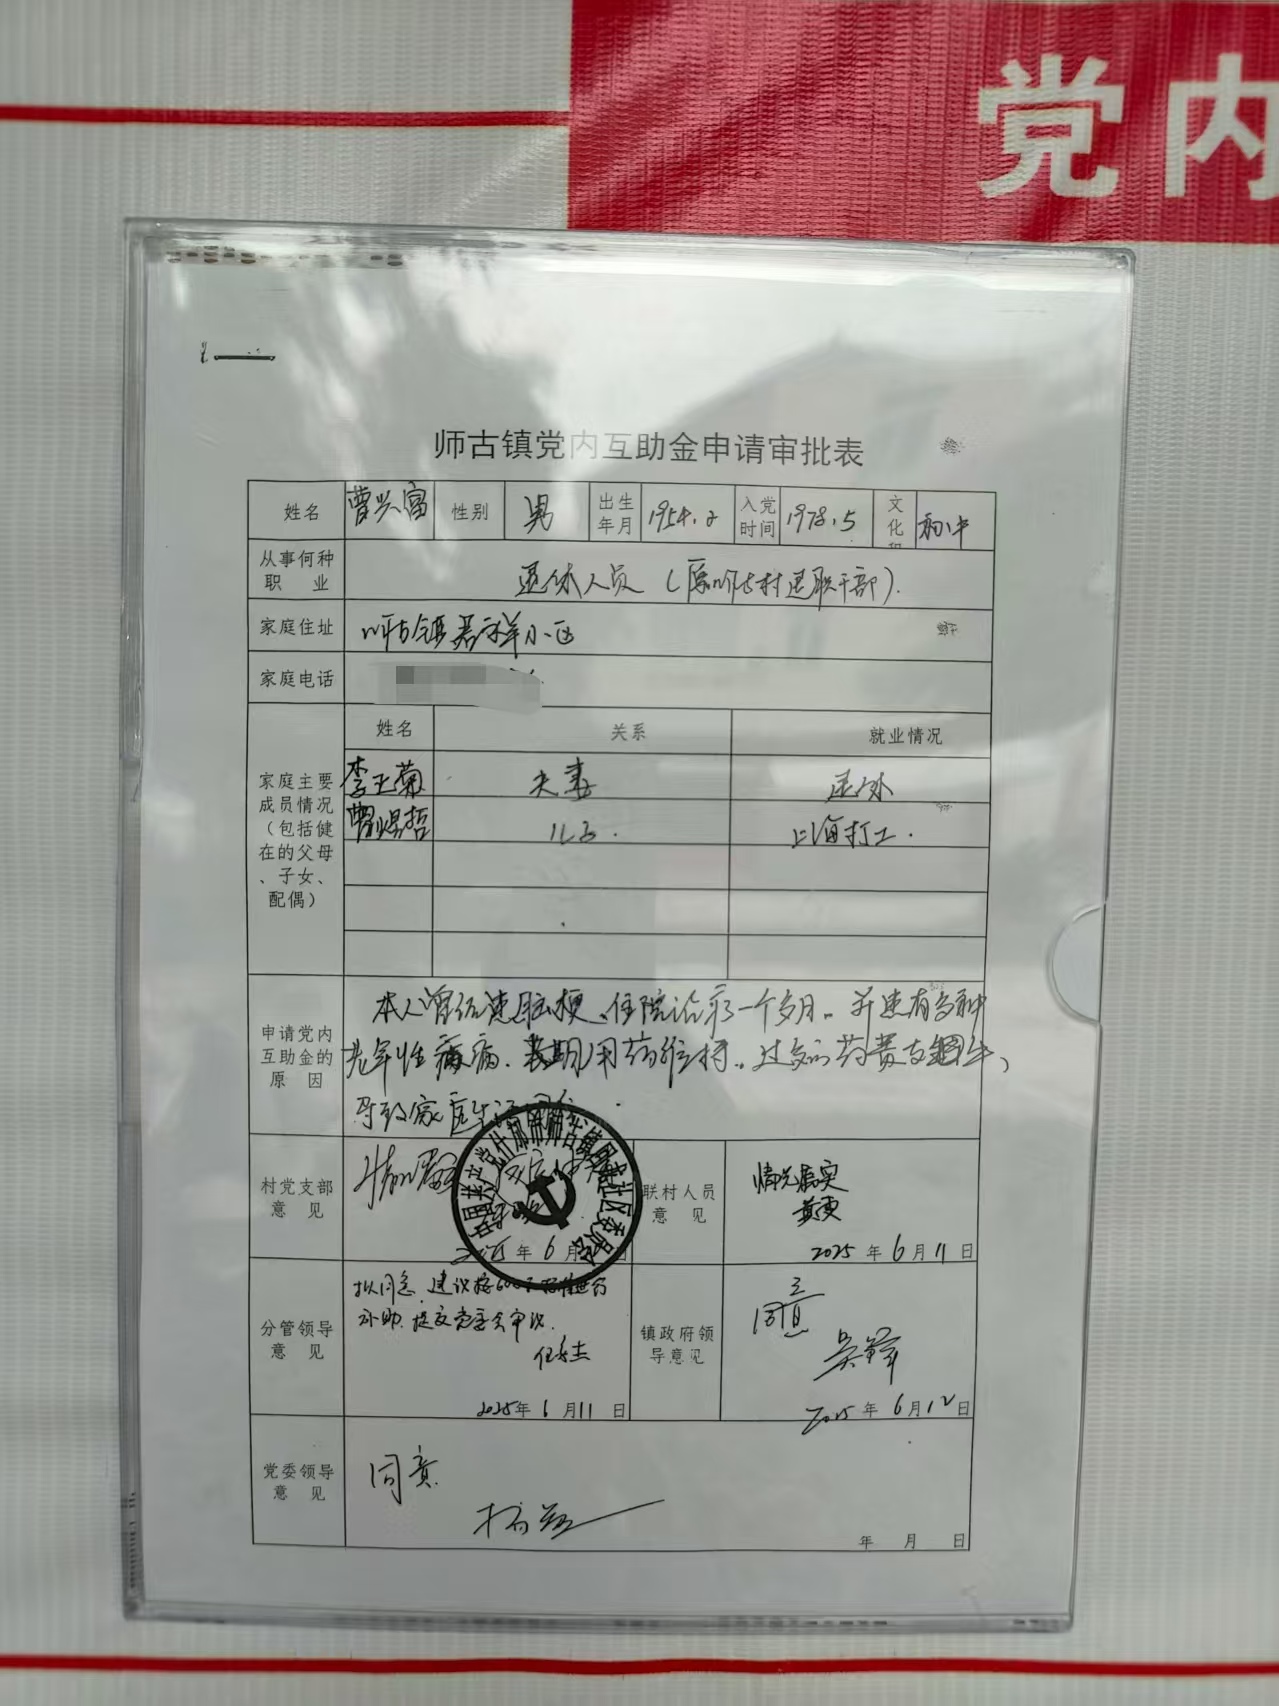 党内
师古镇党内互助金申请审批表
姓名 曹兴富 性别 男 出生年月 1954.2 入党时间 1978.5 文化 初中
从事何种职业 退休人员（原师古村退职干部）.
家庭住址 师古镇 祥小区
家庭电话
家庭主要成员情况（包括健在的父母、子女、配偶）
姓名 关系 就业情况
李玉菊 夫妻 退休
曹 哲 儿子. 上海打工.
申请党内互助金的原因
本人曾经患脑梗、住院治疗一个多月。并患有多种
老年性疾病、长期用药维持。过多的药费支
导致家庭生活
村党支部意见 情况属实
中国共产党什邡市师古镇 社区委员会
2025年6月 日
联村人员意见 情况属实
2025年6月11日
分管领导意见 拟同意，建议按600元标准进行
补助，提交党委会审议.
2025年6月11日
镇政府领导意见 同意
2025年6月12日
党委领导意见 同意
年 月 日